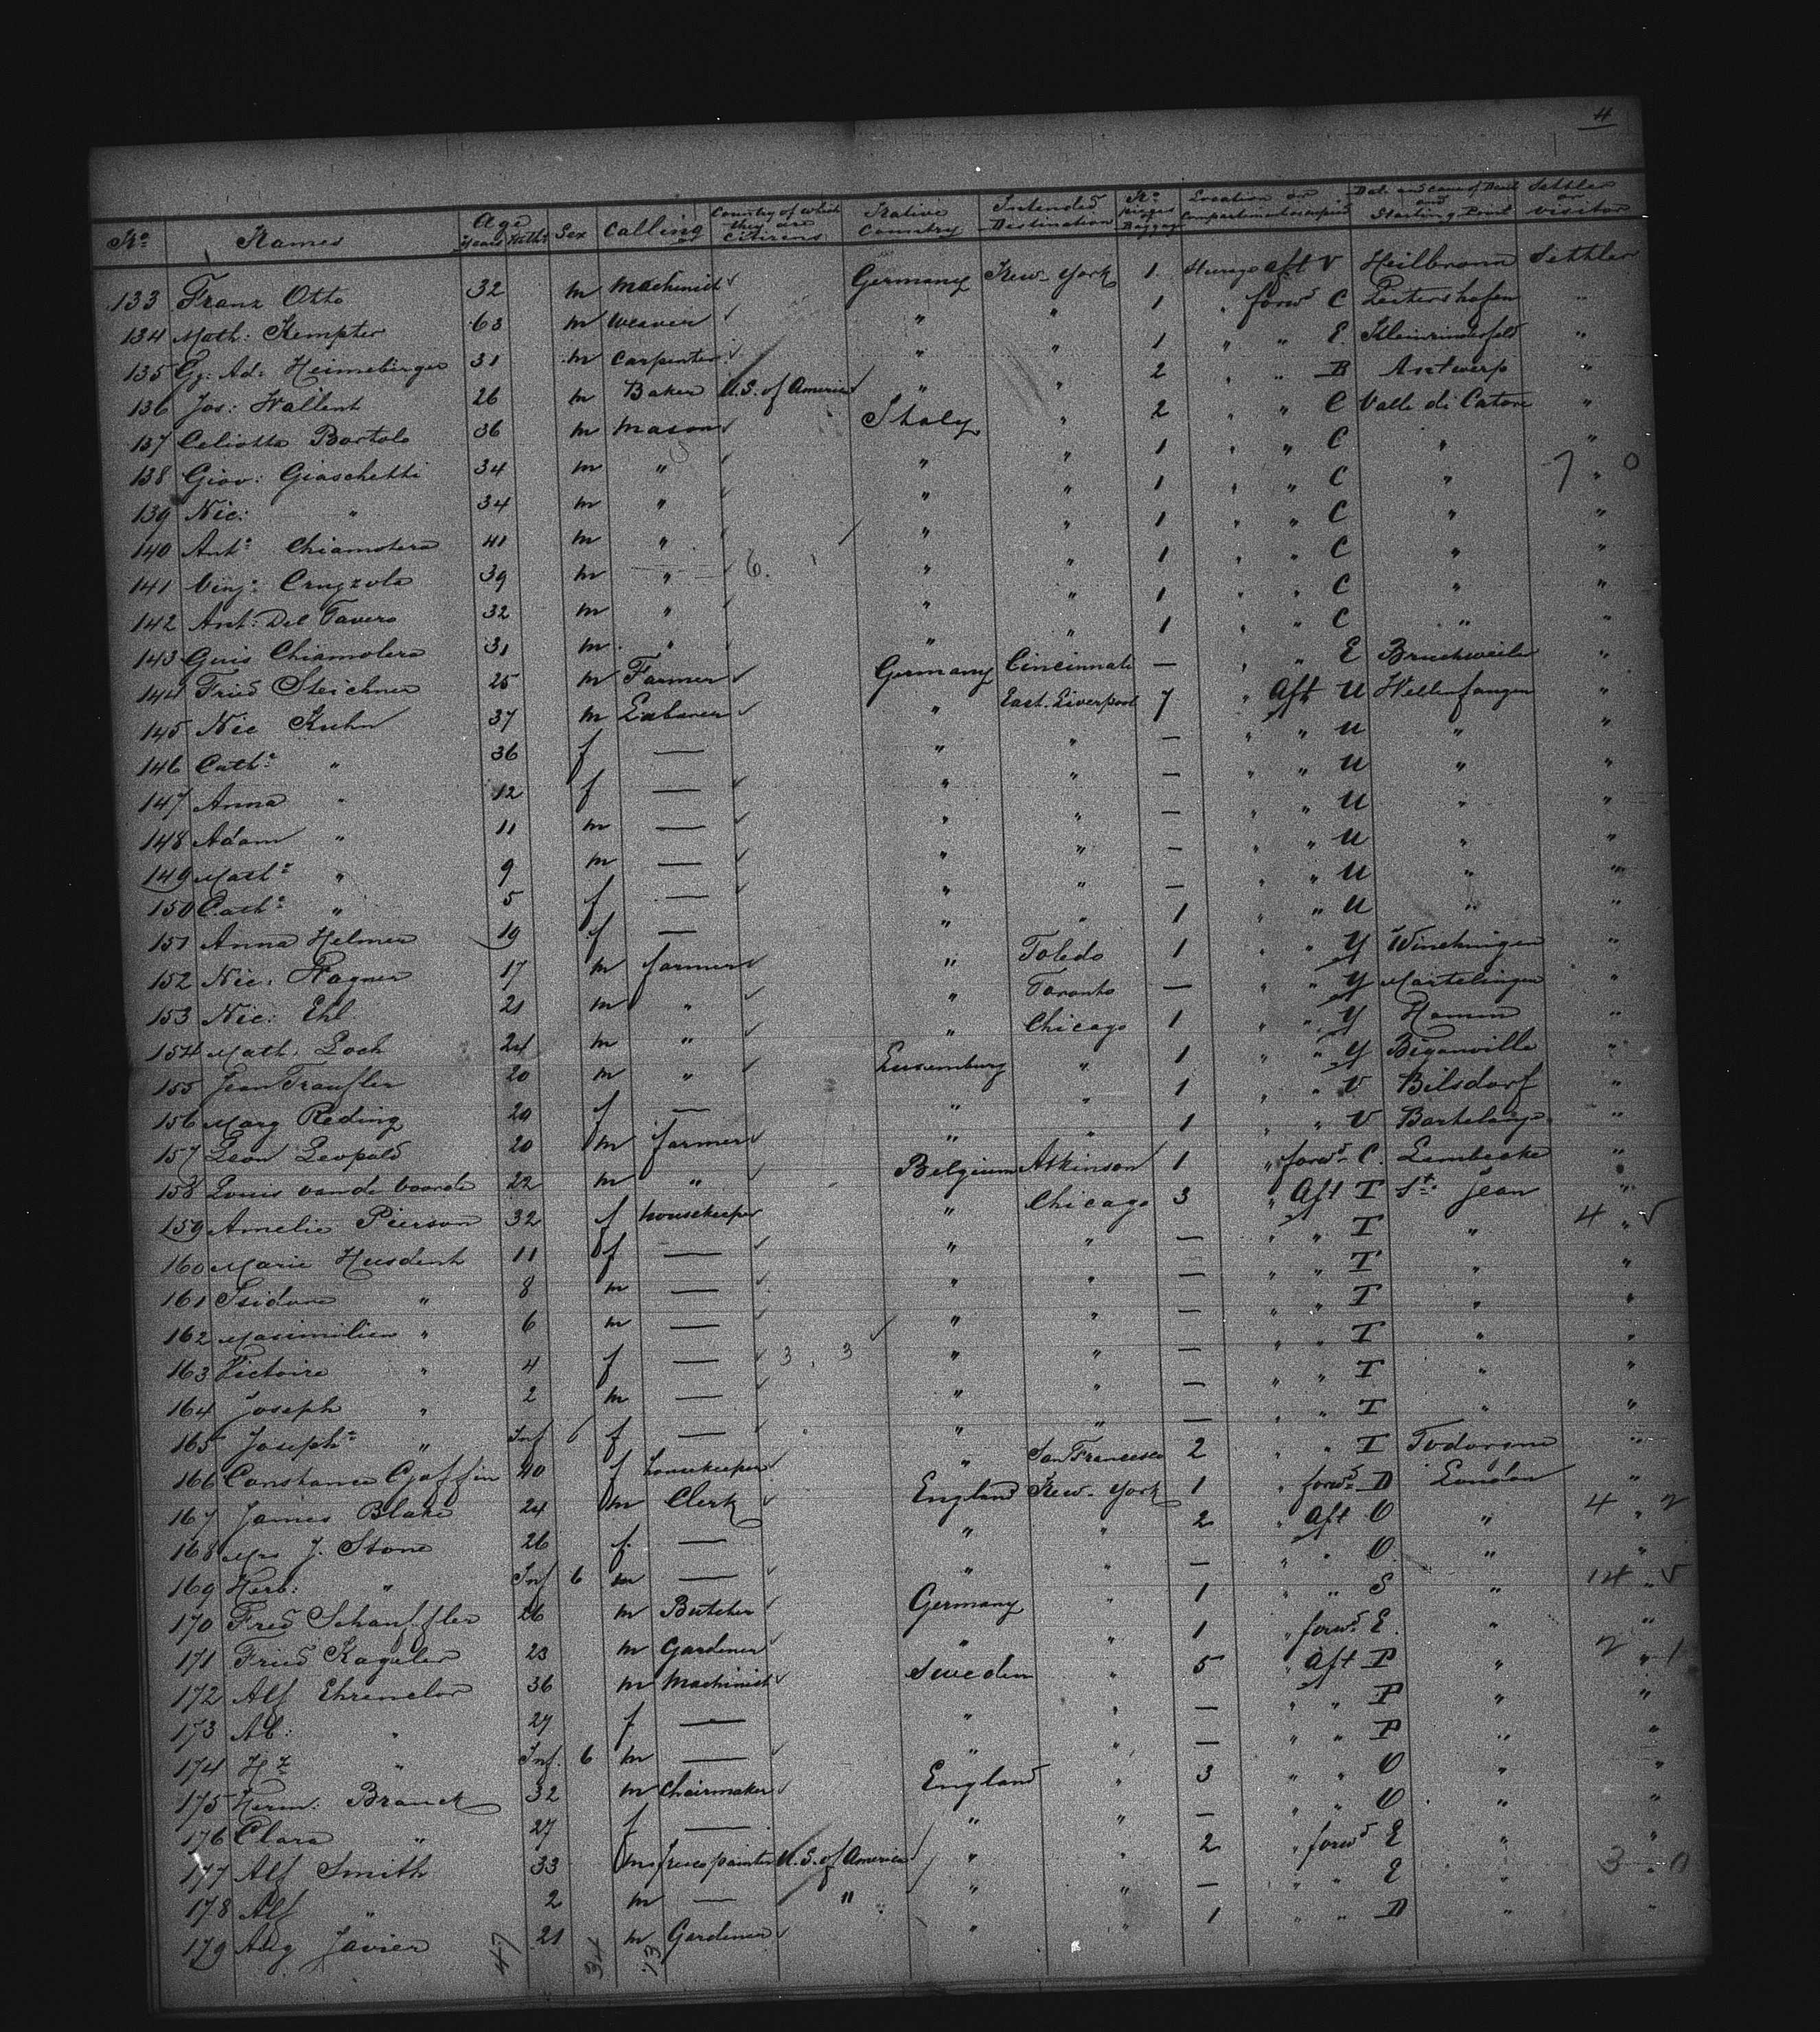 4
No Names Age Years Mths Sex Calling Country of which they are Citizens Native Country Intended Destination No Pieces Baggage Location or Compartment occupied Date and cause of Death and Starting Point Settler or Visitor
133 Franz Otto 32 m machinist Germany New-York 1 Steerage aft V Heilbronn Settler
134 Math: Kempter 63 m weaver " " 1 " forwd C "
135 Gg: Ad: Heimeberger 31 m carpenter " " 1 " " E Kleinrinderfeld "
136 Jos: Wallent 26 m Baker U.S. of America " " 2 " " B Antwerp "
137 Celiotta Bortolo 36 m mason Italy " 2 " " C Valle di Catore "
138 Giov: Giaschetti 34 m " " " 1 " " C " "
139 Nic: " 34 m " " " 1 " " C " " 7 0
140 Anto Chiamolera 41 m " " " 1 " " C " "
141 Vinzo 39 m " 6 " " 1 " " C " "
142 Ant: Del Favero 32 m " " " 1 " " C " "
143 Guis Chiamolera 31 m " " " 1 " " C " "
144 Fried Steichner 25 m Farmer Germany Cincinnati — " " E Bruchweiler "
145 Nic Kuhn 37 m Labourer " East-Liverpool 7 " Aft U "
146 Cathe " 36 f — " " — " " U " "
147 Anna " 12 f — " " — " " U " "
148 Adam " 11 m — " " — " " U " "
149 Mathe " 9 m — " " — " " U " "
150 Cathe " 5 f — " " — " " U " "
151 Anna Helmer 19 f — " " 1 " " U " "
152 Nic: Wagner 17 m farmer " Toledo 1 " " Y Winchringen "
153 Nic: Ehl 21 m " " Toronto — " " Y Martelingen "
154 Math: Loch 24 m " " Chicago 1 " " Y Hamm "
155 Jean Traufler 20 m " Luxemburg " 1 " " Y Biganville "
156 Marg Reding 20 f — " " 1 " " V Bilsdorf "
157 Leon Leopold 20 m farmer " " 1 " " V "
158 Louis vande Voorde 22 m " Belgium Atkinson 1 " forwd C Lembecke "
159 Amelie Pierson 32 f housekeeper " Chicago 3 " Aft T St. Jean "
160 Marie Heusdent 11 f — " " — " " T " " 4 5
161 Isidore " 8 m — " " — " " T " "
162 Maximilien " 6 m — " " — " " T " "
163 Victoire " 4 f — 3 3 " " — " " T " "
164 Joseph " 2 m — " " — " " T " "
165 Josephe " Inf 6 f — " " — " " T " "
166 Constance Goffin 40 f housekeeper " San Francisco 2 " " T "
167 James Blake 24 m Clerk England New-York 1 " forwd D London "
168 Mrs J. Stone 26 f — " " 2 " Aft O " " 4 2
169 Herb: " Inf 6 m — " " — " " O " "
170 Fred Schauffler 26 m Butcher Germany " 1 " " S " " 14 5
171 Fried Kaguler 23 m Gardener " " 1 " forwd E " "
172 Alf Ehrenclor 36 m Machinist Sweden " 5 " Aft P " " 2 1
173 Ab: " 27 f — " " — " " P " "
174 Hz " Inf. 6 m — " " — " " P " "
175 Herm: Branck 32 m Chairmaker England " 3 " " O " "
176 Clara " 27 f — " " — " " O " "
177 Alf Smith 33 m frescopainter U.S. of America " " 2 " forwd E " "
178 Alf " 2 m — " " " — " " E " " 3 0
179 Aug Javier 21 m Gardener " " 1 " " D " "
47 34 13